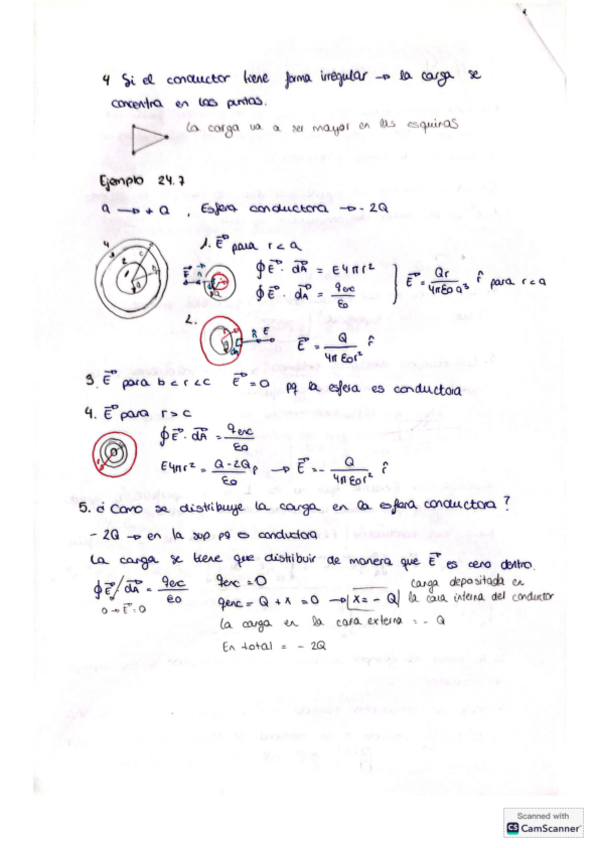 4 Si el conductor tiene forma irregular → la carga se
concentra en las puntas.
La carga va a ser mayor en las esquinas
Ejemplo 24.7
a → + Q , Esfera conductora → - 2Q
1. E⃗ para r < a
∮E⃗ · dA⃗ = E4πr²
∮E⃗ · dA⃗ = qenc/ε0
E⃗ = Qr/4πε0a³ r̂ para r < a
2.
E⃗ = Q/4πε0r² r̂
3. E⃗ para b < r < c E⃗ = 0 pq la esfera es conductora
4. E⃗ para r > c
∮E⃗ · dA⃗ = qenc/ε0
E4πr² = Q - 2Q/ε0 → E⃗ = - Q/4πε0r² r̂
5. ¿Como se distribuye la carga en la esfera conductora?
- 2Q → en la sup pq es conductora
La carga se tiene que distribuir de manera que E⃗ es cero dentro.
∮E⃗ / dA⃗ = qenc/ε0 qenc = 0
0 → E⃗ = 0 qenc = Q + x = 0 → x = - Q carga depositada en
la cara interna del conductor
La carga en la cara externa = - Q
En total = - 2Q
Scanned with
CS CamScanner